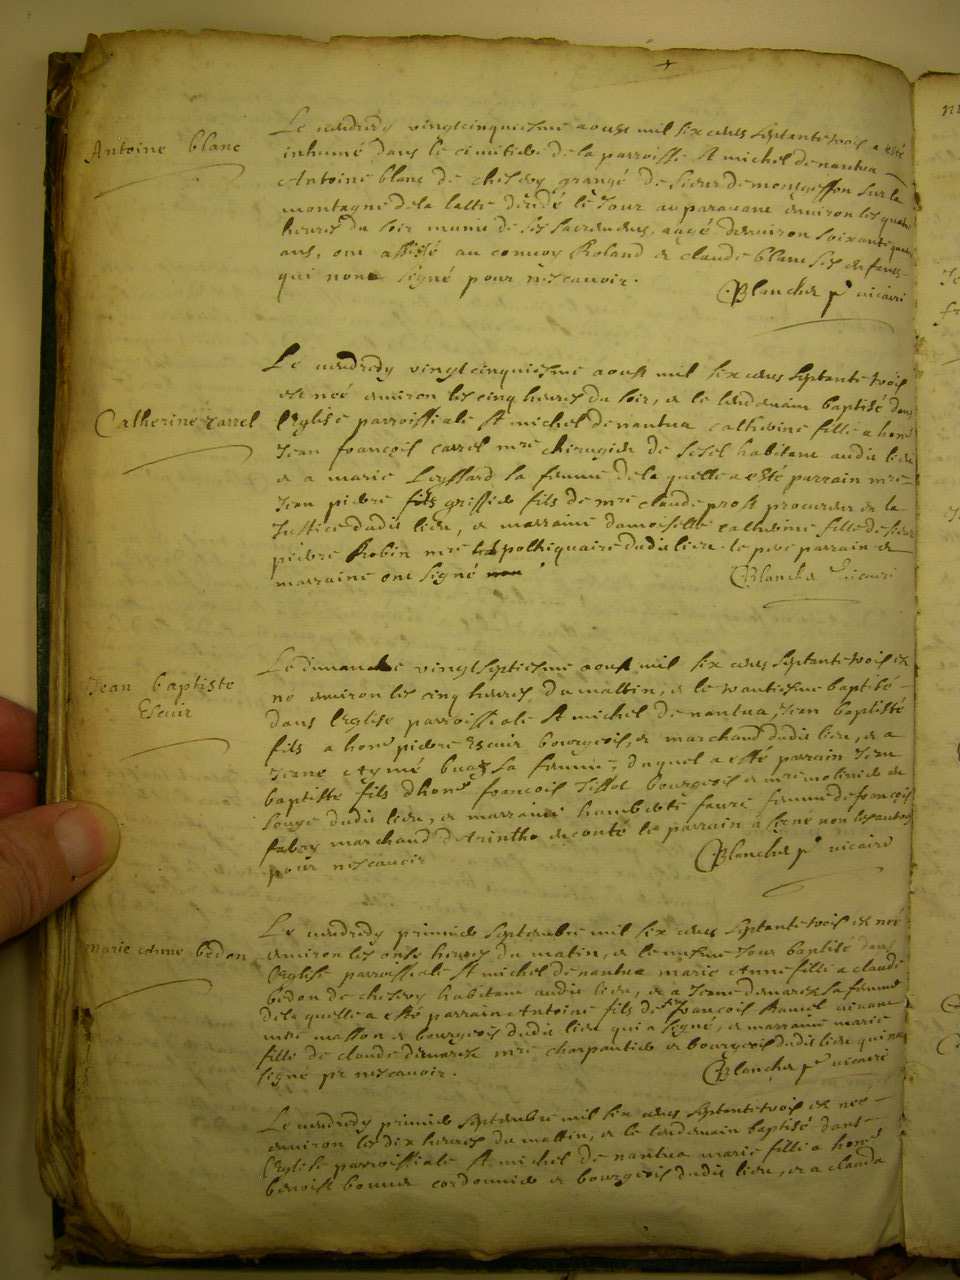 Antoine blanc
Le vendredy vingtcinquiesme aoust mil six cens septante trois a esté
inhumé dans le cimitiere de la parroisse St michel de nantua
Antoine blanc de chesroy grangé de Sieur de montgeffon sur la
montagne de la latte décédé le Jour auparavant environ les quatre
heures du soir muni de ses sacremens, aagé denviron soixante quatre
ans, ont assisté au convoy Roland et claude blanc ses enfans
qui nont signé pour ne scavoir.
Blanchet pt vicaire
Catherine Carrel
Le vendredy vingtcinquiesme aoust mil six cens septante trois
est neé environ les cinq heures du soir, et le lendemain baptisé dans
lEglise parroissiale St michel de nantua catherine fille a honn
Jean françois carrel mre chirugien de Seisel habitant audit lieu
et a marie Leyssard sa femme de laquelle a esté parrain mre
Jean pierre fils griffié fils de mre claude prost procureur en la
Justice dudit lieu, et marraine damoiselle catherine fille de Sieur
pierre Robin mre apothiquaire dudit lieu le pere parrain et
marraine ont signé
Blanchet vicaire
Jean baptiste
Escuir
Le dimanche vingt septiesme aoust mil six cens septante trois est
né environ les cinq heures du mattin, et le trantiesme baptisé
dans lEglise parroissiale St michel de nantua, Jean baptiste
fils a honn pierre Escuir bourgeois, et marchand dudit lieu, et a
Jeane Aymé sa femme, duquel a esté parrain Jean
baptiste fils dhonn françois Tissot bourgeois et
dudit lieu, et marraine humberte faure femme de françois
fabry marchand dArintho en conté le parrain a signé non les autres
pour ne scavoir
Blanchet pt vicaire
marie Anne bedon
Le vendredy premier septembre mil six cens septante trois est neé
environ les onse heures du matin, et le mesme Jour baptisé dans
lEglise parroissiale St michel de nantua marie Anne fille a claude
bedon de chesroy habitant audit lieu, et a Jeane demarest sa femme
de laquelle a esté parrain Antoine fils de françois Ramel vivant
mre masson et bourgeois dudit lieu qui a signé, et marraine marie
fille de claude demarest mre charpantier et bourgeois dudit lieu qui na
signé pr ne scavoir.
Blanchet pt vicaire
Le vendredy premier septembre mil six cens septante trois est neé
environ les dix heures du mattin, et le lendemain baptisé dans
lEglise parroissiale St michel de nantua marie fille a honn
benoist cordonnier et bourgeois dudit lieu, et a clauda